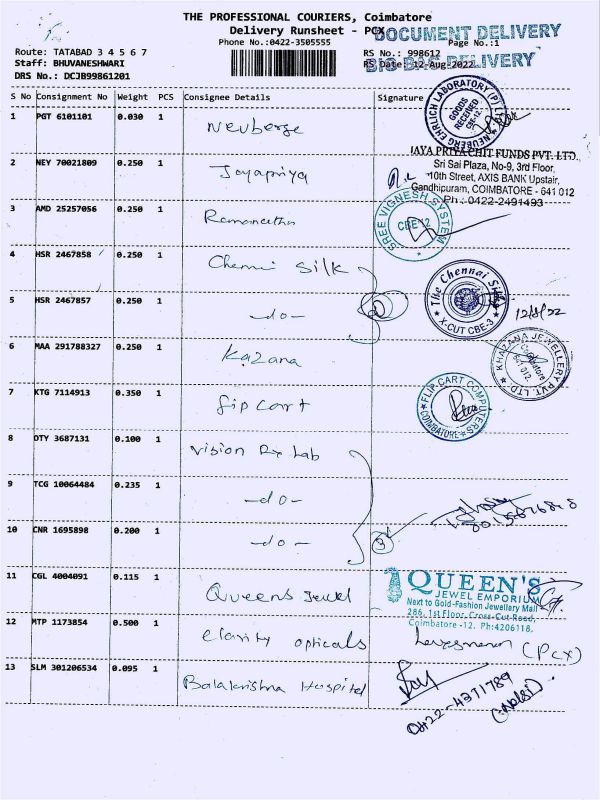 THE PROFESSIONAL COURIERS, Coimbatore
Delivery Runsheet - PCX
DOCUMENT DELIVERY
Phone No.:0422-3505555
Page No.:1
Route: TATABAD 3 4 5 6 7
RS No.: 998612
BIG BAG DELIVERY
Staff: BHUVANESHWARI
RS Date: 12-Aug-2022
DRS No.: DCJB99861201
S No Consignment No Weight PCS Consignee Details Signature
1 PGT 6101101 0.030 1 Neuberge
NEUBERG EHRLICH LABORATORY (P) LTD
GOODS RECEIVED
CBE-12
2 NEY 70021809 0.250 1 Jayapriya
JAYA PRIYA CHIT FUNDS PVT. LTD.
Sri Sai Plaza, No-9, 3rd Floor,
10th Street, AXIS BANK Upstair,
Gandhipuram, COIMBATORE - 641 012
Ph: 0422-2491493
3 AMD 25257056 0.250 1
SREE VIGNESH SYSTEM
CBE 12
4 HSR 2467858 0.250 1 Chennai Silk
5 HSR 2467857 0.250 1 -do-
The Chennai Silks
X-CUT CBE-3
12/8/22
6 MAA 291788327 0.250 1 Kazana
KHAZANA JEWELLERY PVT LTD.
Coimbatore
641 012.
7 KTG 7114913 0.350 1 flipcart
FLIP-CART COMPUTERS
COIMBATORE
8 OTY 3687131 0.100 1 Vision Rx Lab
9 TCG 10064484 0.235 1 -do-
10 CNR 1695898 0.200 1 -do-
3
11 CGL 4004091 0.115 1 Queens Jewel
QUEEN'S
JEWEL EMPORIUM
Next to Gold-Fashion Jewellery Mall
286, 1st Floor, Cross-Cut-Road,
Coimbatore -12. Ph:4206118,
12 MTP 1173854 0.500 1 Clarity opticals
(PCX)
13 SLM 301206534 0.095 1 Balakrishna Hospital
0422-4371789